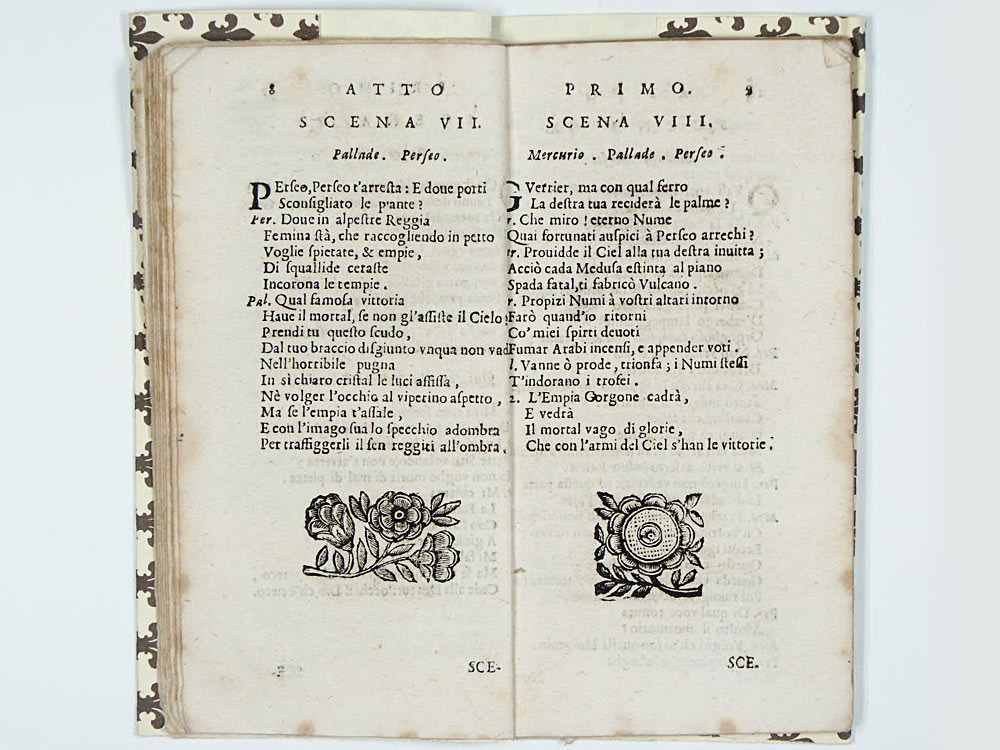 8 ATTO
SCENA VII.
Pallade. Perſeo.
PErſeo, Perſeo t'arreſta : E doue porti
Sconſigliato le piante ?
Per. Doue in alpeſtre Reggia
Femina ſtà, che raccogliendo in petto
Voglie ſpietate, & empie,
Di ſquallide ceraſte
Incorona le tempie.
Pal. Qual famoſa vittoria
Haue il mortal, ſe non gl'aſſiſte il Cielo
Prendi tu queſto ſcudo,
Dal tuo braccio diſgiunto vnqua non vad
Nell'horribile pugna
In sì chiaro criſtal le luci affiſſa,
Nè volger l'occhio al viperino aſpetto,
Ma ſe l'empia t'aſſale,
E con l'imago ſua lo ſpecchio adombra
Per traffiggerli il ſen reggiti all'ombra.
SCE-
PRIMO. 9
SCENA VIII.
Mercurio. Pallade. Perſeo.
GVerrier, ma con qual ferro
La deſtra tua reciderà le palme ?
r. Che miro ! eterno Nume
Quai fortunati auſpici à Perſeo arrechi ?
r. Prouidde il Ciel alla tua deſtra inuitta ;
Acciò cada Meduſa eſtinta al piano
Spada fatal, ti fabricò Vulcano.
r. Propizi Numi à voſtri altari intorno
Farò quand'io ritorni
Co' miei ſpirti deuoti
Fumar Arabi incenſi, e appender voti.
l. Vanne ò prode, trionfa ; i Numi ſteſſi
T'indorano i trofei.
2. L'Empia Gorgone cadrà,
E vedrà
Il mortal vago di glorie,
Che con l'armi del Ciel s'han le vittorie.
SCE.